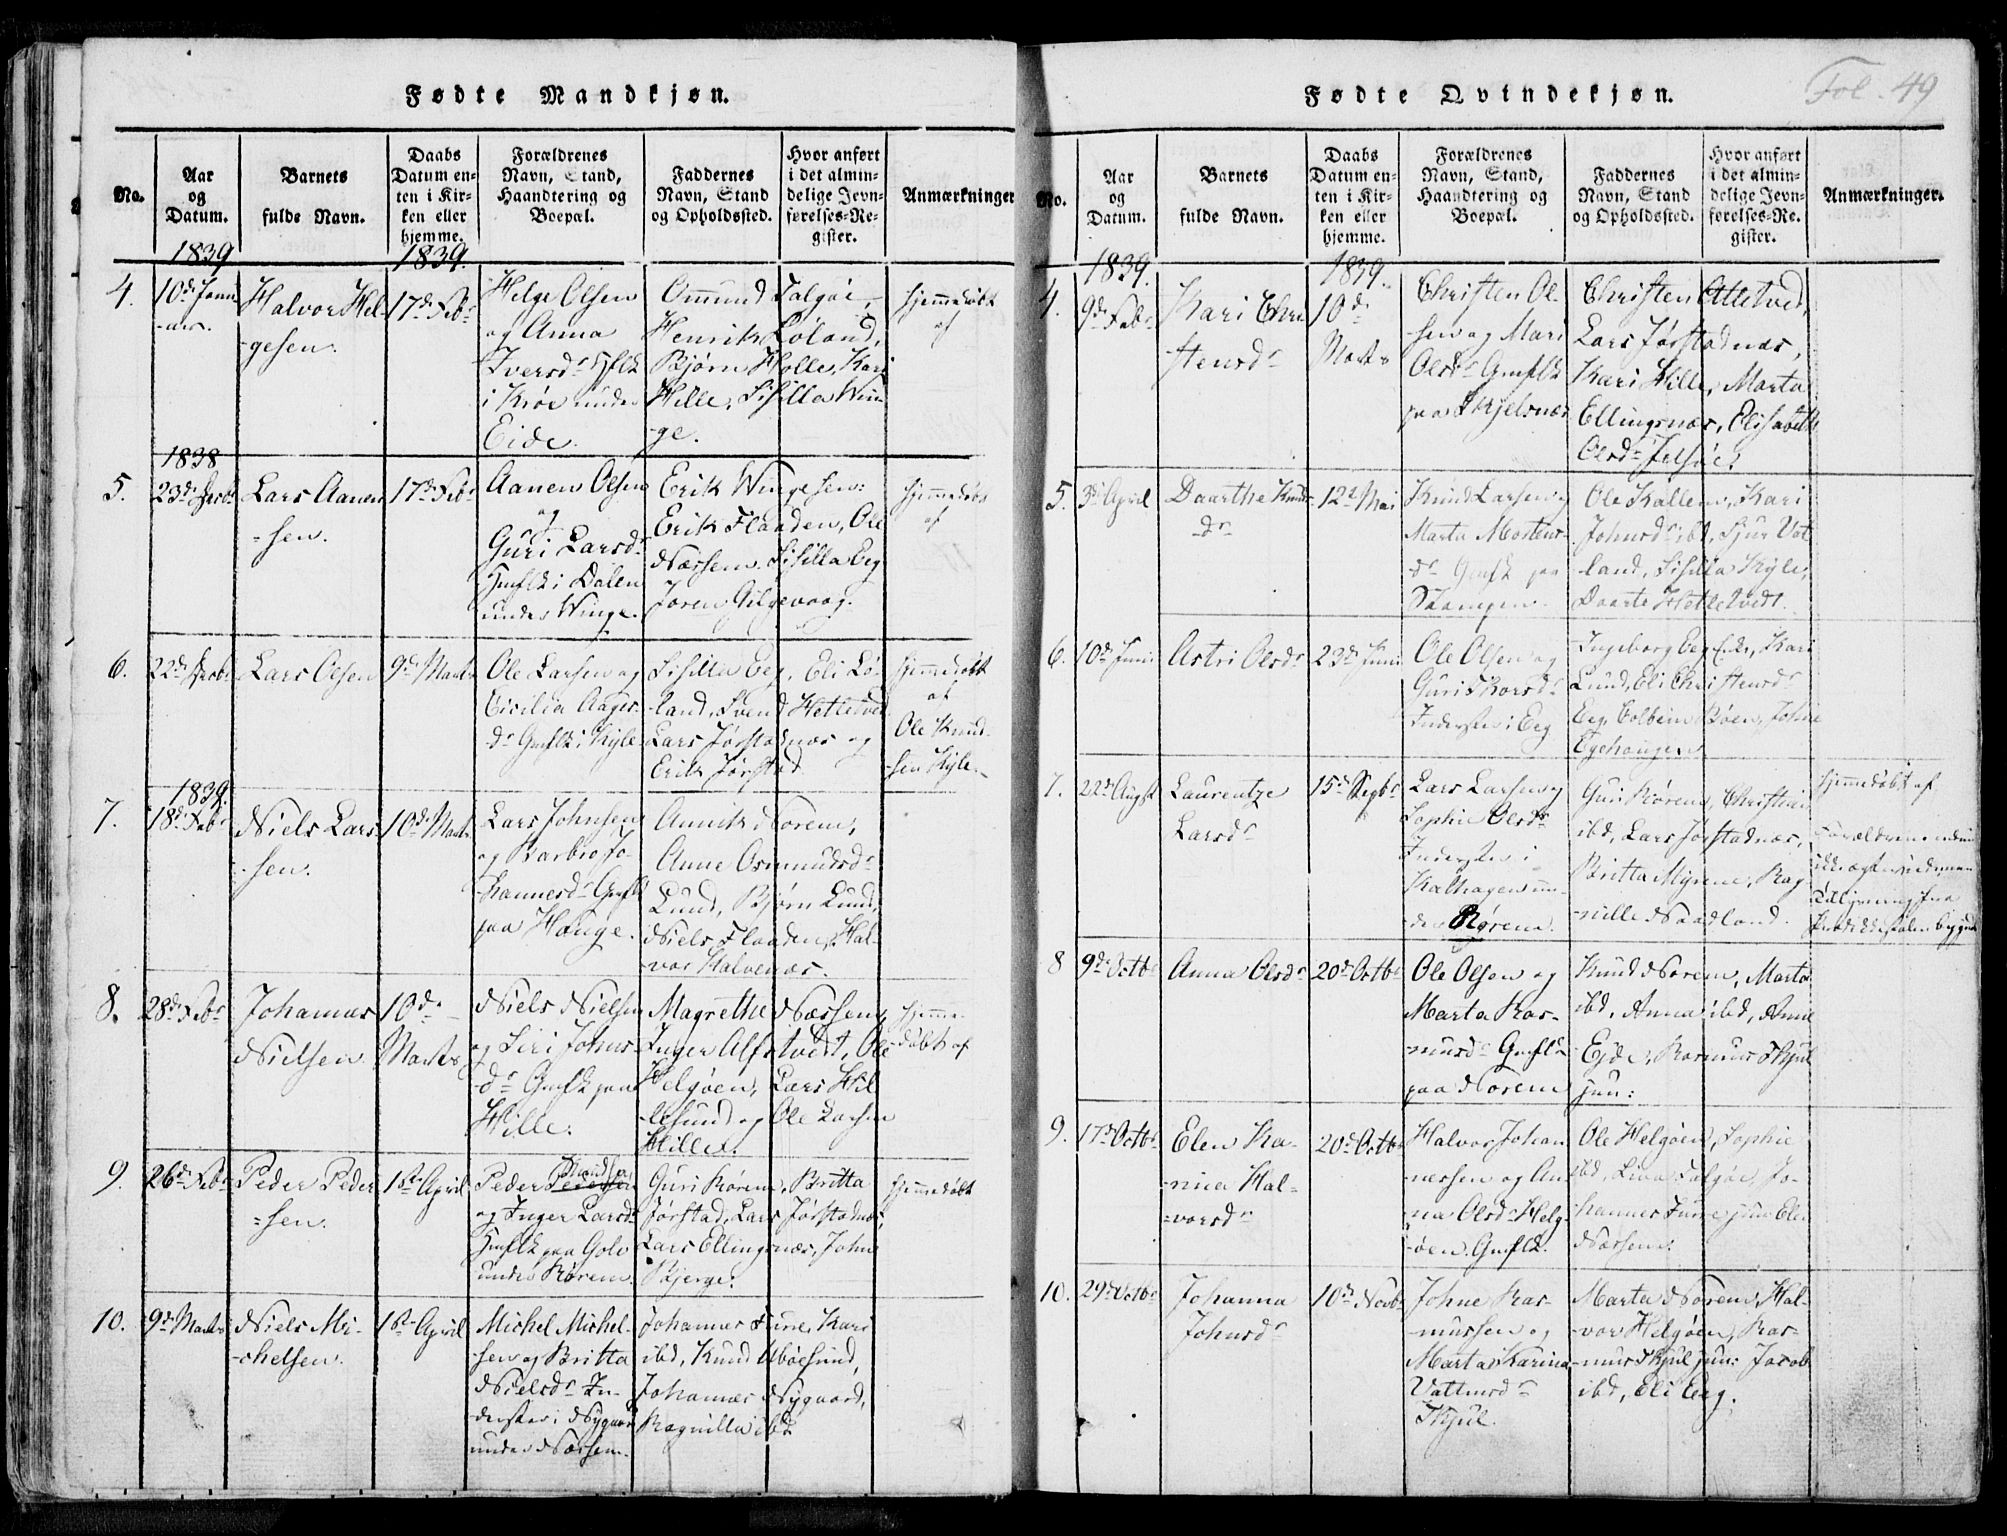 Fødte Mandkjøn.
No.
Aar
og
Datum.
Barnets
fulde Navn.
Daabs
Datum en-
ten i Kir-
ken eller
hjemme.
Forældrenes
Navn, Stand,
Haandtering og
Boepæl.
Faddernes
Navn, Stand
og Opholdssted.
Hvor anført
i det almin-
delige Jevn-
førelses-Re-
gister.
Anmærkninger
1839
1839.
4.
10de Janu
-ar.
Halvor Hel-
-gesen.
17de Febr
Helge Olsen
og Anna
Iversdr Hflk
i Krøe under
Eide.
Omund Talgøe,
Henrik Løland,
Bjørn Holle, Kari
Hille, Sisilla Win
ge.
hjemedøbt
af
1838
5.
23de Decbr
Lars Aanen
=sen.
17de Febr
Aanen Olsen
og
Guri Larsdr
Hmflk i Dalen
under Winge.
Erik Winge sen:
Erik Flaaden, Ole
Nærsen. Sisilla Eeg
Joren Gilgevaag.
hjemedøbt
af
6.
22de Decbr
Lars Olsen
9de Marts
Ole Larsen og
Cicilia Aager-
dr Gmflk i Kyle
Sisilla Eeg, Eli Lø-
land, Svend Hetletved
Lars Jørstadnæs og
Erik Jørstad
hjemedøbt
af
Ole Knud-
sen Kyle.
1839.
7.
18de Febr
Niels Lars
-sen.
10de Marts
Lars Johnsen
og Barbro Jo-
hannesdr Gmflk
paa Hauge.
Annik Norem,
Anne Osmundsdr
Lund, Bjørn Lund,
Niels Flaaden, Hal-
vor Halvenæs.
8.
28de Febr
Johannes
Nielsen
10de
Marts
Niels Nielsen
og Siri Johns-
dr Gmflk paa
Hille.
Magrethe Næssen,
Inger Alfstvedt, Ole
Helgøen, Lars Hil
lesund og Ole Larsen
Hille.
hjemme-
døbt af
9.
26de Febr
Peder Peder
=sen.
1ste April
Peder Pedersen
og Inger Larsdr
Hmflk paa Golv
under Rørem.
Guri Rørem, Britta
Jørstad, Lars Jørstadnæs,
Lars Ellingsnæs, John
Bjerge.
hjemedøbt
10.
9de Marts
Niels Mi-
chelsen.
1ste April
Michel Michel-
sen og Britta
Nielsdr In-
derster i Nygaard
under Næssen.
Johannes Furre, Kari
ibd, Knud Ubøesund,
Johannes Nygaard,
Ragnilla ibd
Fødte Qvindekjøn.
Fol. 49
No.
Aar
og
Datum.
Barnets
fulde Navn.
Daabs
Datum en-
ten i Kir-
ken eller
hjemme.
Forældrenes
Navn, Stand,
Haandtering og
Boepæl.
Faddernes
Navn, Stand
og Opholdssted.
Hvor anført
i det almin-
delige Jevn-
førelses-Re-
gister.
Anmærkninger.
1839.
1839.
4.
9de Febr
Kari Chri
stensdr
10de
Marts
Christen Ol-
sen og Mari
Olsdr Gmflk
paa Skjelsnæs
Christen Alletved,
Lars Jørstadnæs,
Kari Hille, Marta
Ellingsnæs, Elisabeth
Olsdr Jelsøe.
5.
3de April
Daarthe Knuds
dr
12te Mai
Knud Larsen og
Marta Mortens-
dr Gmflk paa
Stampen.
Ole Kallem, Kari
Johnsdr ibd, Sjur Vat
land, Sisilla Kyle,
Daarte Hetletvedt.
6.
10de Juni
Astri Olsdr
23de Juni
Ole Olsen og
Guri Thorsdr
Inderster i Eeg
Ingeborg Eeg, Kari
Lund, Eli Christensdr
Eeg, Colbein Bøen, John
Egehaugen
7.
22de Augst
Laurentze
Larsdr
15de Septbr
Lars Larsen og
Sophie Olsdr
Inderster i
Kalhagen un-
der Rørem.
Guri Rørem, Christian
ibd, Lars Jørstadnæs,
Britta Myrene, Rag
nille Naadland.
hjemedøbt af
8
9de Octbr
Anna Olsdr
20de Octbr
Ole Olsen og
Marta Ras-
musdr Gmflk
paa Norem
Knud Norem, Marta
ibd, Anna ibd, Anne
Ejde, Rasmus Skjul
jun:
9.
17de Octbr
Elen Ka-
rina Hal-
-vorsdr
20de Octbr
Halvor Johan
nessen og An
na Olsdr Helg-
øen. Gmflk.
Ole Helgøen, Sophie
ibd, Lina Talgøe, Jo-
hannes Furre jun Elen
Næssen.
10.
29de Octbr
Johanna
Johnsdr
10de Novbr
Johne Ras-
mussen og
Marta Karina
Valtinsdr
Skjul.
Marta Norem, Hal-
vor Helgøen, Ras-
mus Skjul jun: Jacob
ibd, Eli Eeg.